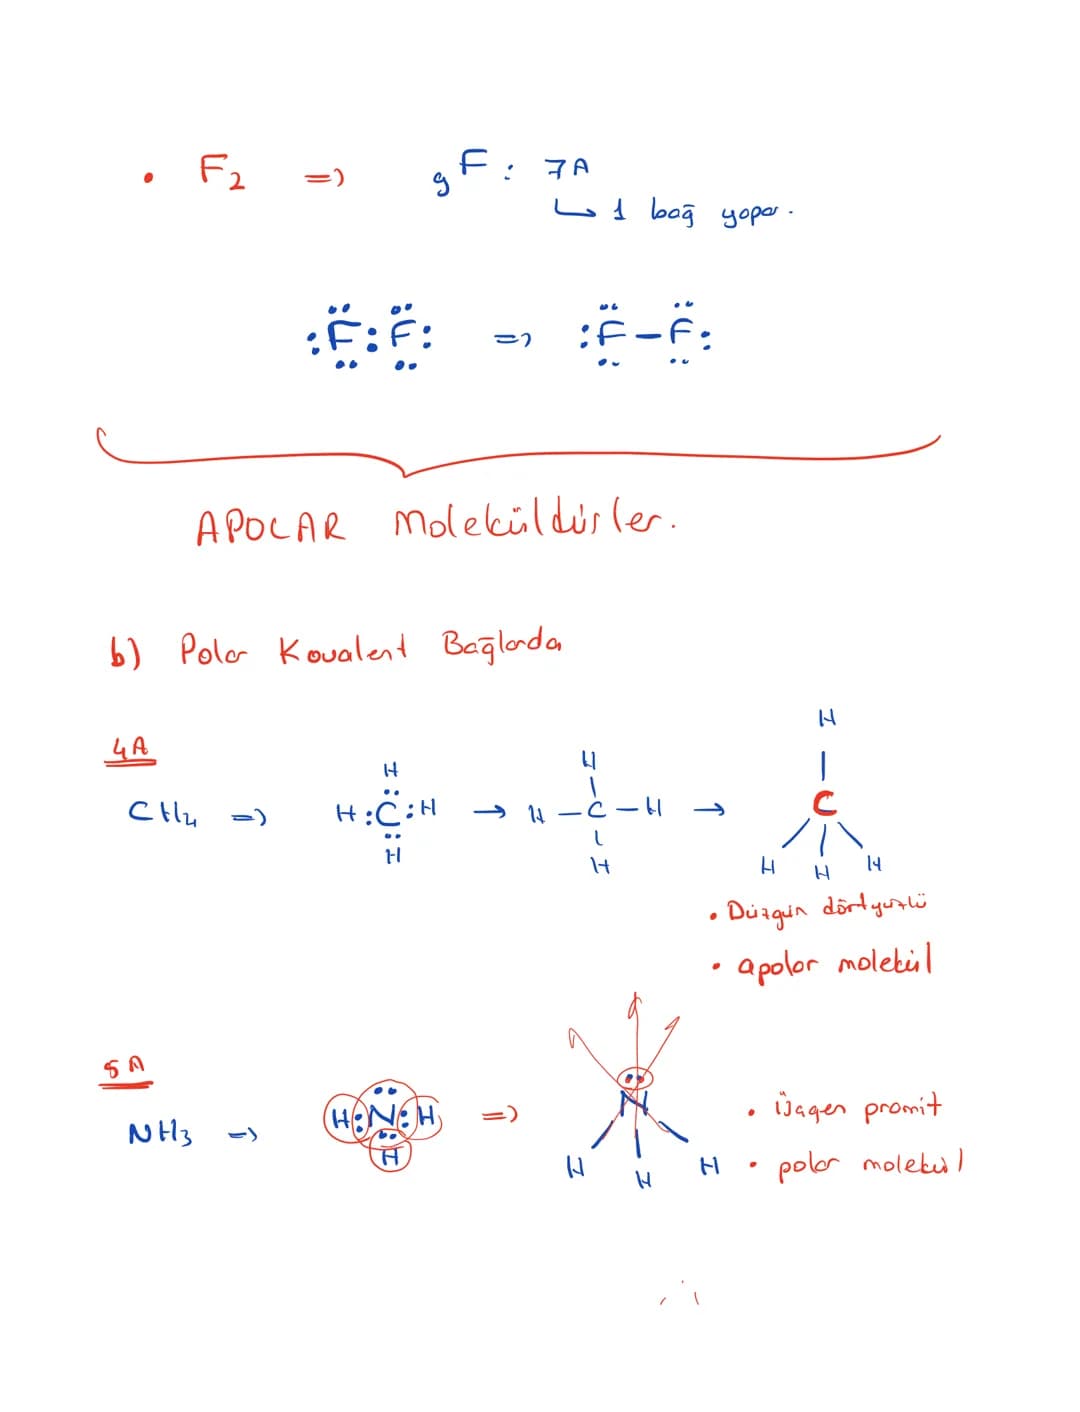 • F₂ => ₉F : 7A
↳ 1 bağ yapar.
:F:F: => :F–F:
APOLAR Moleküldürler.
b) Polar Kovalent Bağlarda
4A
H
H
H
CH₄ => H:C:H → H–C–H → C
H
H
H H H
• Düzgün dörtyüzlü
• apolar molekül
5A
NH₃ => H:N:H => N
H
H H H
• üçgen promit
• polar molekül